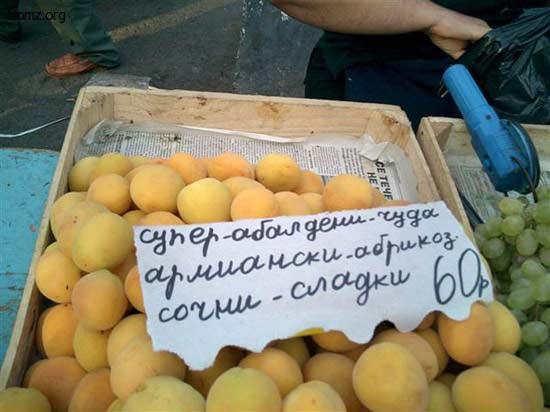 bomz.org
супер-абалдени-чуда
армиански-абрикоз.
сочни-сладки 60р